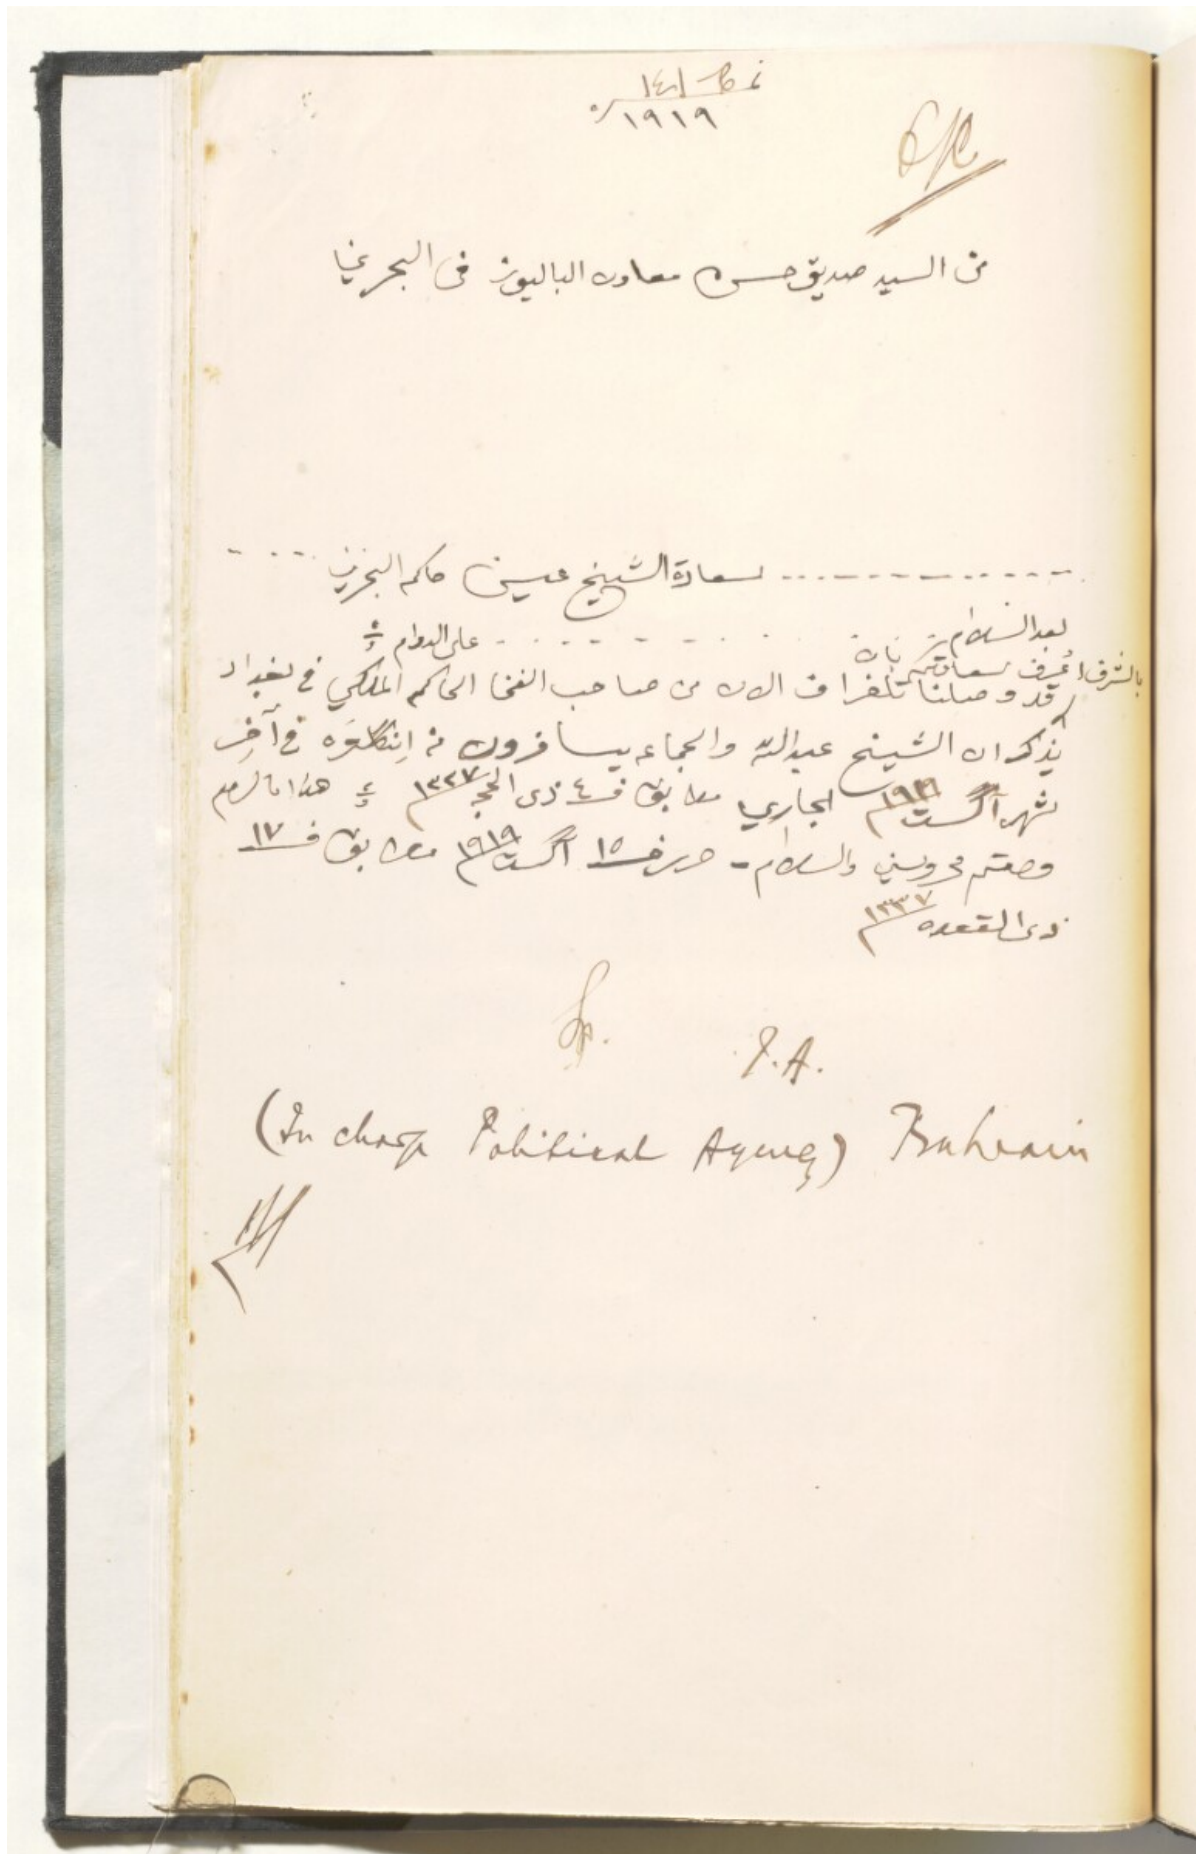 نمبر ١٤١
١٩١٩
من السيد صديق حسن معاون الباليوز فى البحرين
لسعادة الشيخ عيسى حاكم البحرين
بعد السلام على الدوام
بالشرف اُعرف سعادتكم بان
قد وصلنا تلغراف الان من صاحب الفخا الحاكم الملكي في بغداد
يذكر ان الشيخ عبدالله والجماعه يسافرون من اِنكلتره في آخِر
شهر آگست ١٩١٩م الجاري مطابق فـ ٤ ذى الحجه ١٣٣٧ هذا مالزم
ودمتم محروسين والسلام - حرر فـ ١٥ آگست ١٩١٩م مطابق فـ ١٧
ذى القعده ١٣٣٧
I.A.
(In charge Political Agency) Bahrain